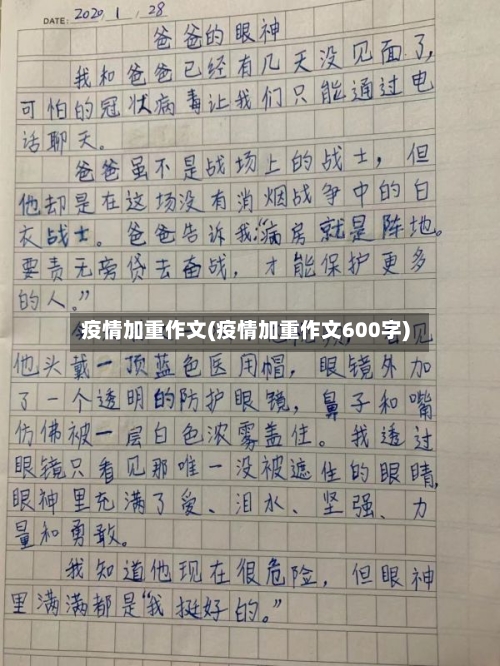 DATE: 2020 1 28
爸爸的眼神
我和爸爸已经有几天没见面了,
可怕的冠状病毒让我们只能通过电
话聊天。
爸爸虽不是战场上的战士,但
他却是在这场没有消烟战争中的白
衣战士。爸爸告诉我:“病房就是阵地。
要责无旁贷去奋战,才能保护更多
的人。”
疫情加重作文(疫情加重作文600字)
见
他头戴一顶蓝色医用帽,眼镜外加
了一个透明的防护眼镜,鼻子和嘴
仿佛被一层白色浓雾盖住。我透过
眼镜只看见那唯一没被遮住的眼睛,
眼神里充满了爱、泪水、坚强、力
量和勇敢。
我知道他现在很危险,但眼神
里满满都是“我挺好的。”